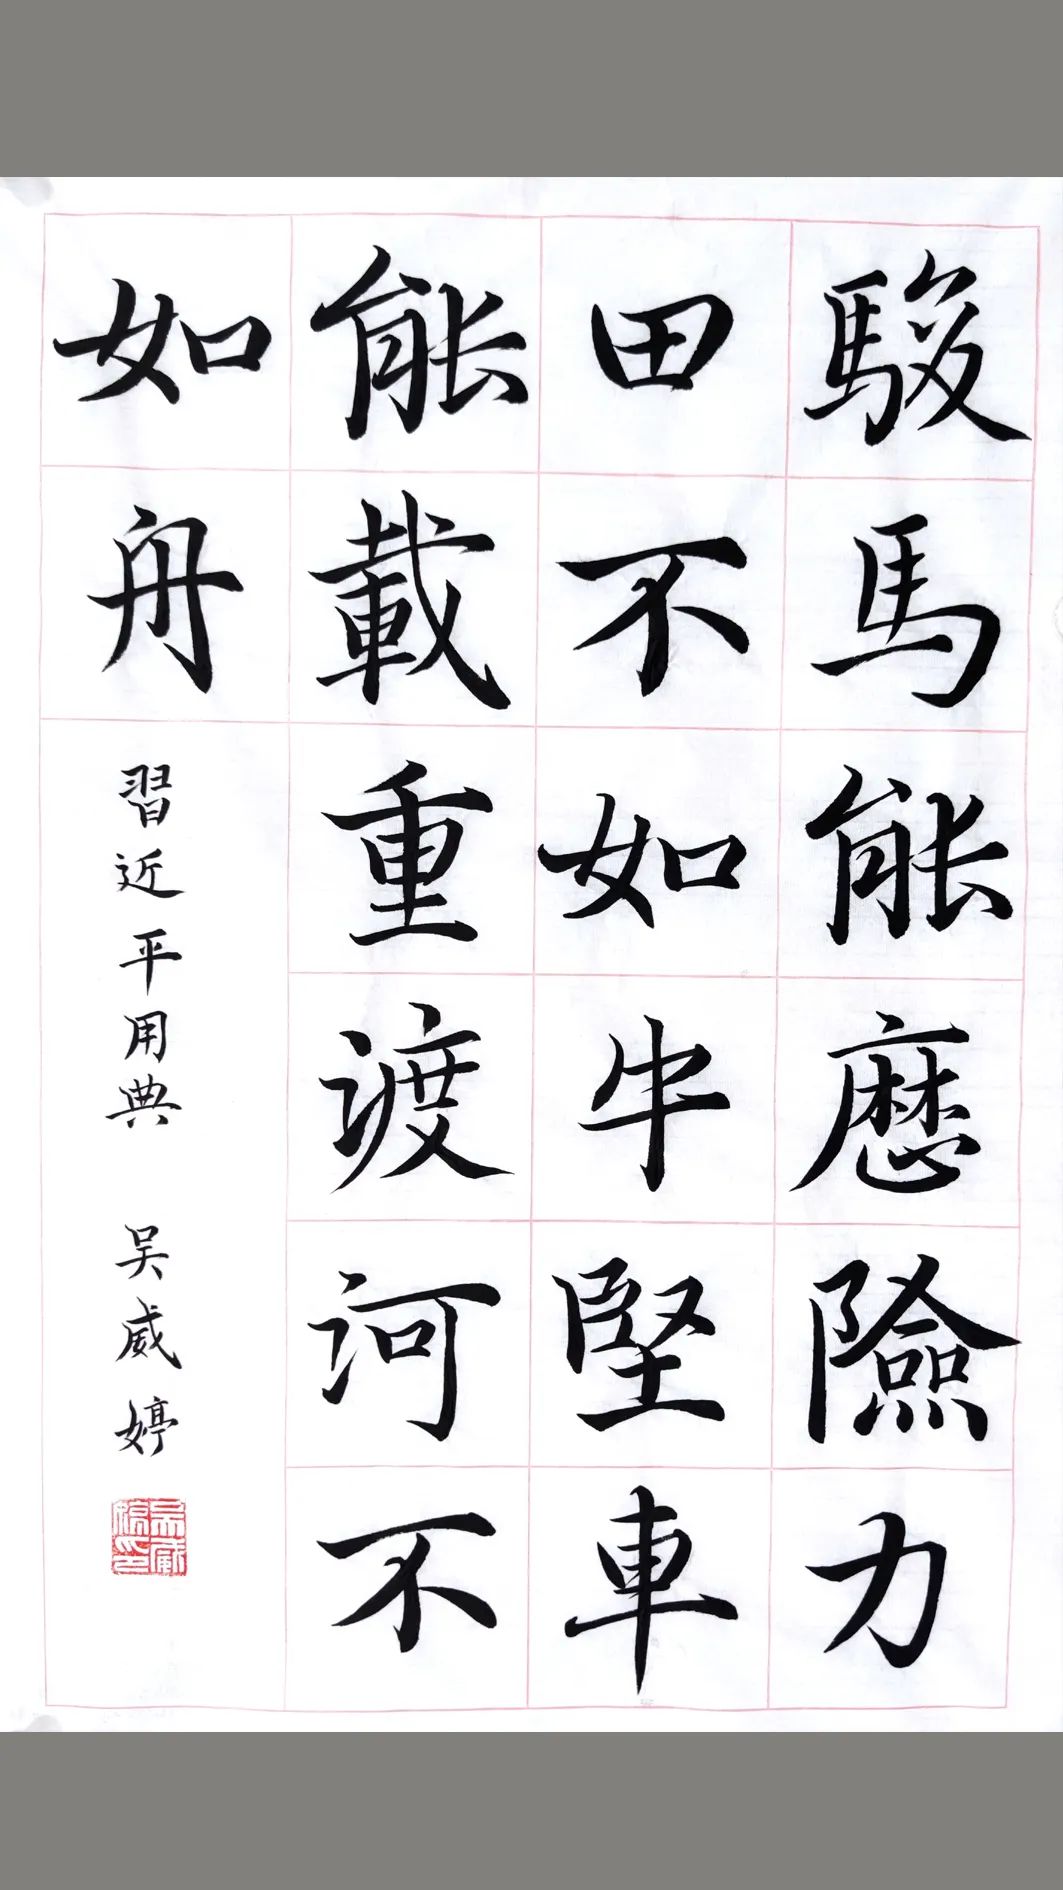 駿馬能歷險力
田不如牛堅車
能載重渡河不
如舟
習近平用典 吴威婷
吴威婷印